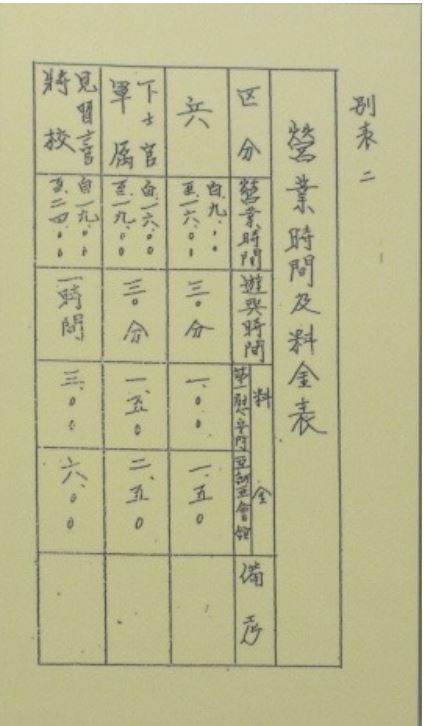 別表二
營業時間及料金表
区分
營業時間
遊興時間
料金
第一慰安所
亞細亞會館
備考
兵
自九、〇〇
至一六、〇〇
三〇分
一、〇〇
一、五〇
下士官
軍属
自一六、〇〇
至一九、〇〇
三〇分
一、五〇
二、五〇
見習士官
將校
自一九、〇〇
至二四、〇〇
一時間
三、〇〇
六、〇〇